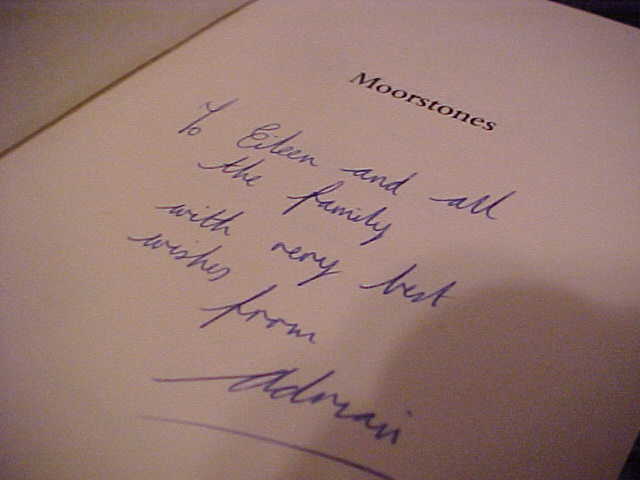 Moorstones
To Eileen and all
the family
with very best
wishes
from
Adrian